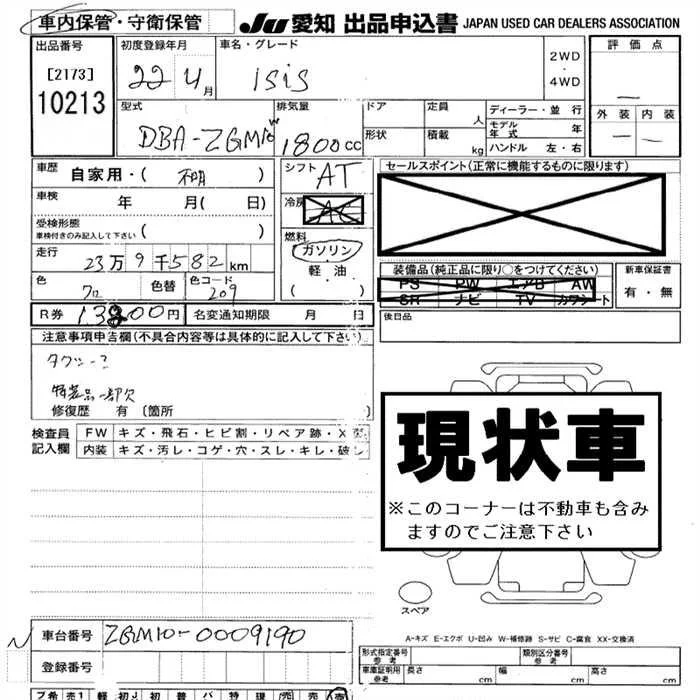 車内保管・守衛保管
JU 愛知 出品申込書 JAPAN USED CAR DEALERS ASSOCIATION
出品番号
[2173]
10213
初度登録年月
22 4月
車名・グレード
isis
2WD
・
4WD
評価点
—
外装 内装
— —
型式
DBA-ZGM10W
排気量
1800cc
ドア
形状
定員 人
積載 kg
ディーラー・並行
モデル年式 年
ハンドル 左・右
車歴
自家用・( 不明 )
車検 年 月( 日)
受検形態
車検付きのみ記入して下さい ( )
走行
23万9千582km
色
色替
色コード
209
シフト
AT
冷房
AC
燃料
ガソリン
軽油
( )
セールスポイント(正常に機能するものに限ります)
装備品(純正品に限り○をつけてください)
PS PW エアB AW
SR ナビ TV カワシート
新車保証書
有・無
後日品
R券 13200円
名変通知期限 月 日
注意事項申告欄(不具合内容等は具体的に記入して下さい)
タクシー
修復歴 有 〔箇所 〕
検査員
記入欄
FW キズ・飛石・ヒビ割・リペア跡・X
内装 キズ・汚レ・コゲ・穴・スレ・キレ・破レ
現状車
※このコーナーは不動車も含み
ますのでご注意下さい
スペア
A-キズ E-エクボ U-凹み W-補修跡 S-サビ C-腐食 XX-交換済
車台番号 ZGM10-0009190
登録番号
形式指定番号
参考
類別区分番号
参考
車庫証明用
参考
長さ cm 幅 cm 高さ cm